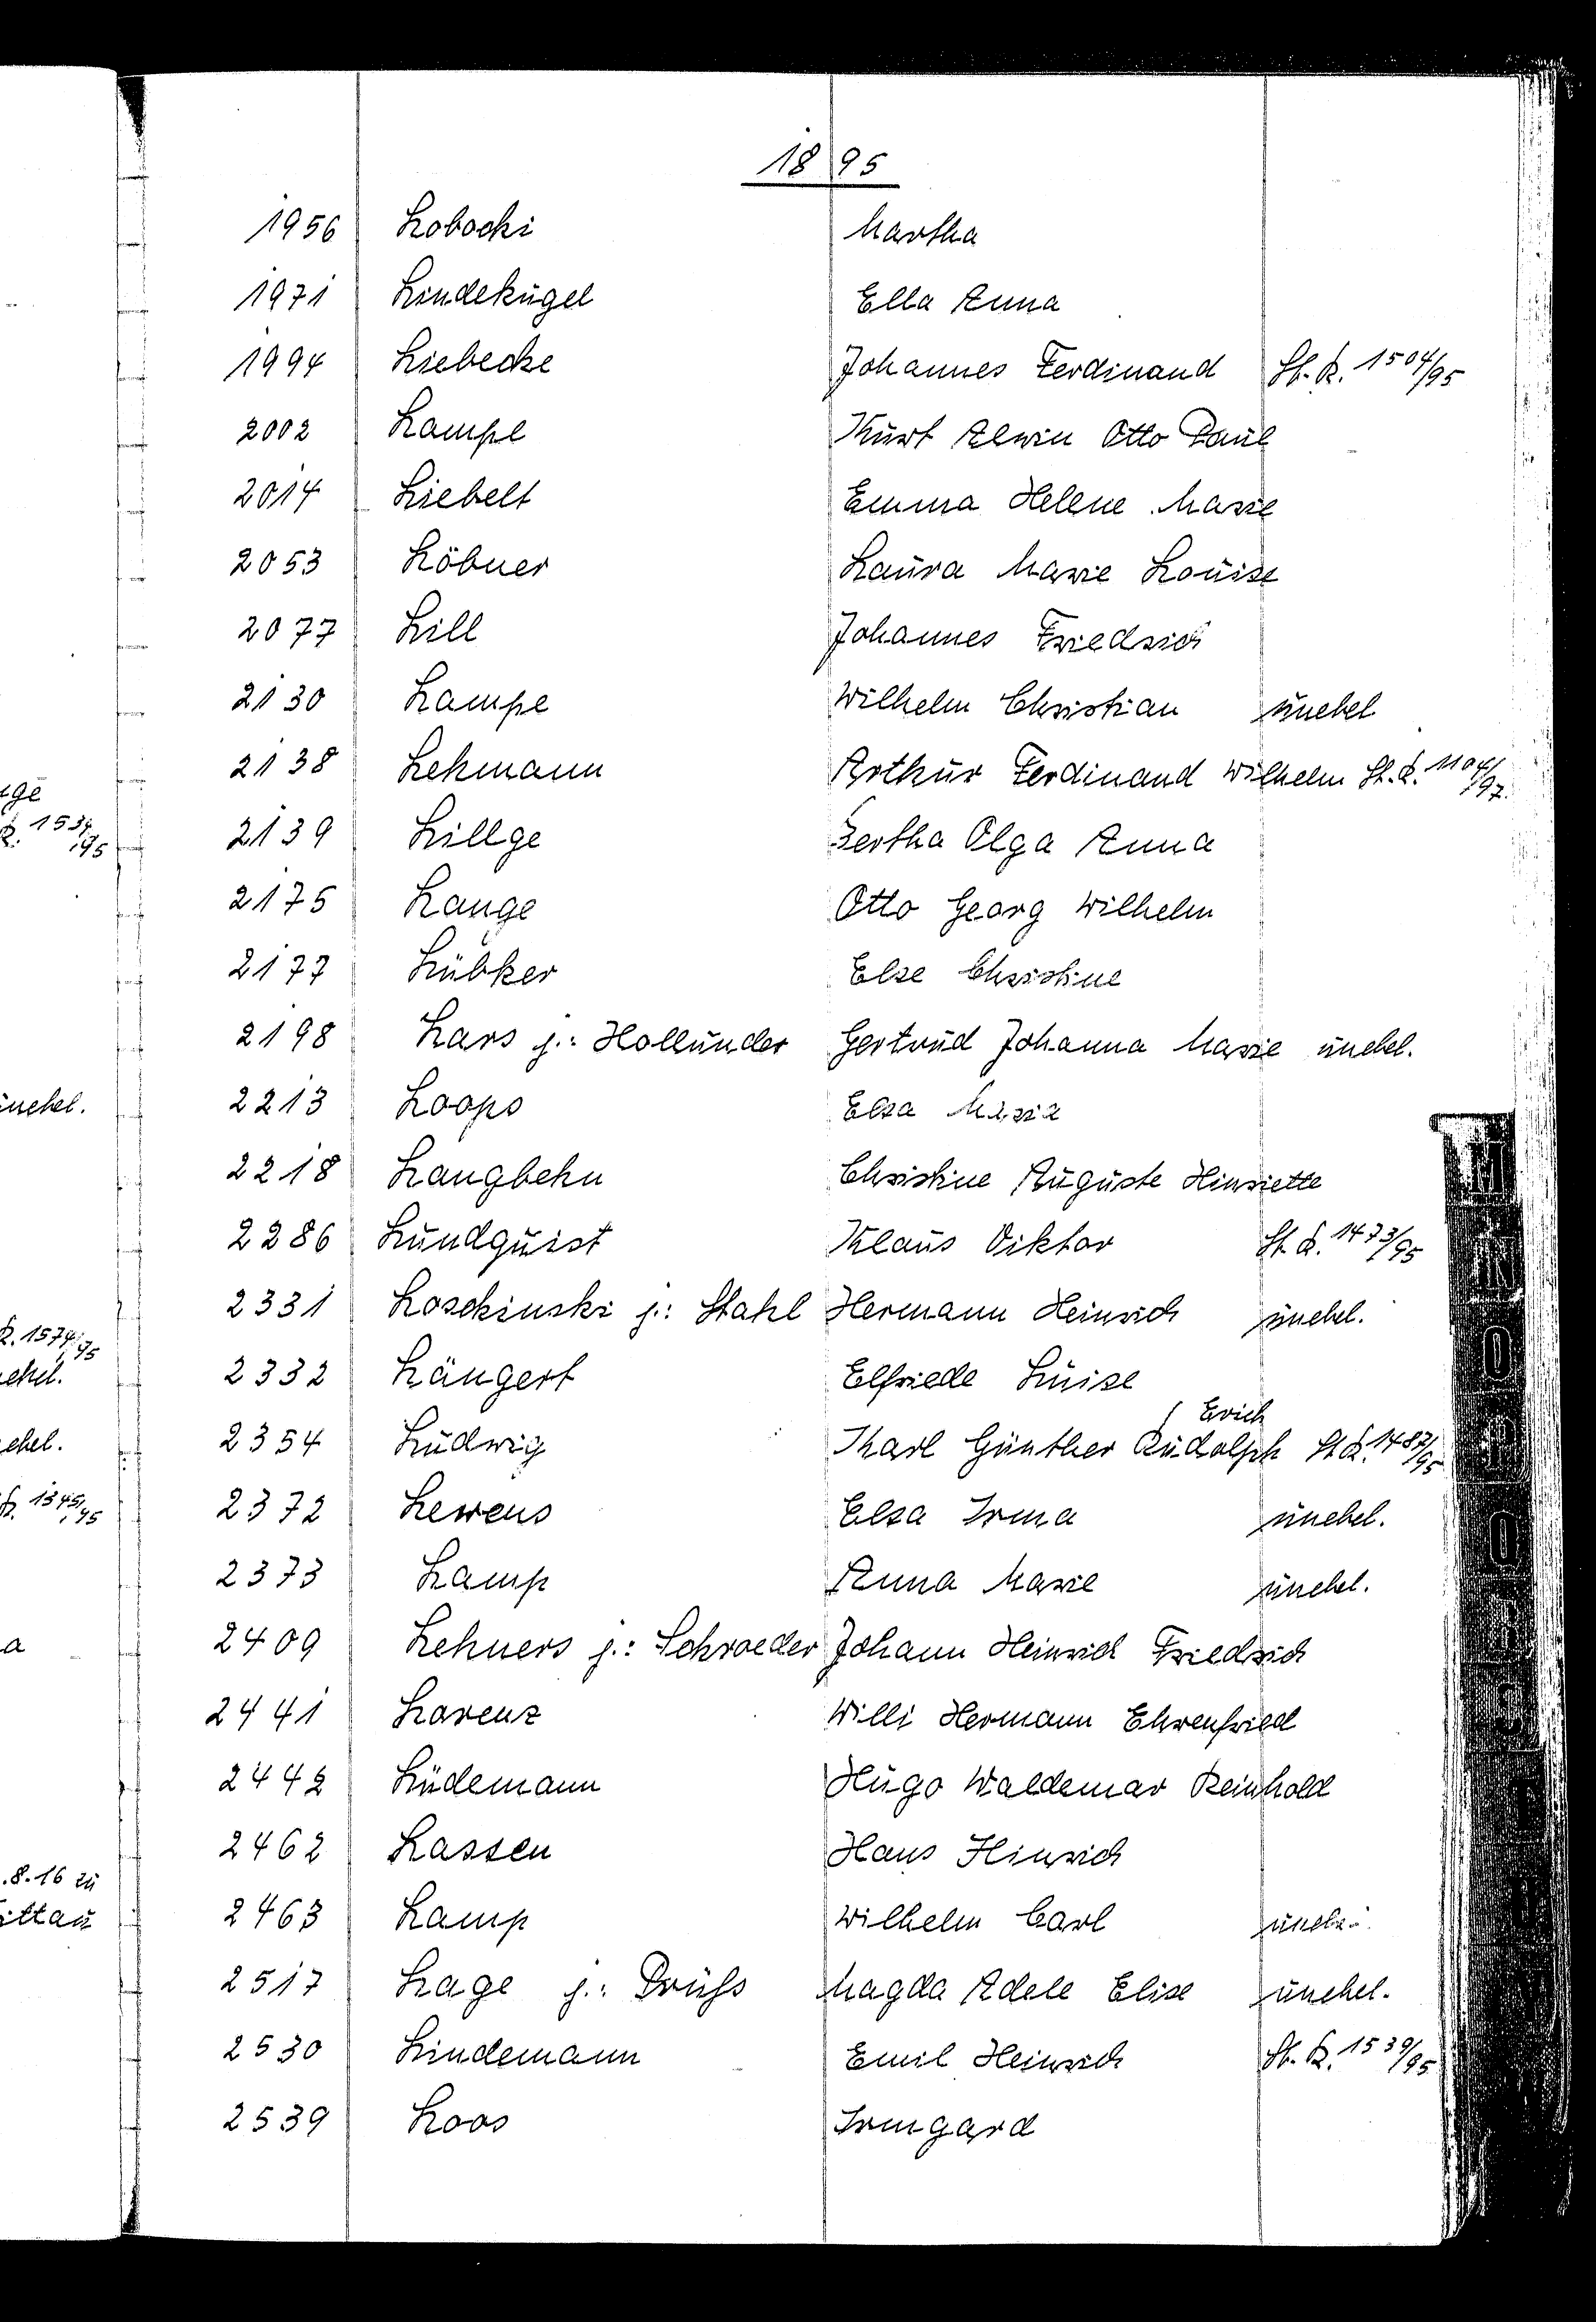 1895
1956 Lobocki Martha
1971 Lindekugel Ella Anna
1994 Liebecke Johannes Ferdinand St. R. 1504/95
2002 Lampe Kurt Alwin Otto Paul
2014 Liebelt Emma Helene Marie
2053 Löbner Laura Marie Louise
2077 Lill Johannes Friedrich
2130 Lampe Wilhelm Christian unehel
2138 Lehmann Arthur Ferdinand Wilhelm St. R. 1104/97.
2139 Lillge Bertha Olga Anna
2175 Lange Otto Georg Wilhelm
2177 Lübker Else Christine
2198 Lars j.: Hollunder Gertrud Johanna Marie unehel.
2213 Loops Elsa Maria
2218 Langbehn Christine Auguste Hinriette
2286 Lundquist Klaus Viktor St. R. 1473/95
2331 Loschinski j.: Stahl Hermann Heinrich unehel.
2332 Längert Elfriede Luise
Erich
2354 Ludwig Karl Günther Rudolph St. R. 1487/95
2372 Lewens Elsa Irma unehel.
2373 Lamp Anna Marie unehel.
2409 Lehners j.: Schroeder Johann Heinrich Friedrich
2441 Lorenz Willi Hermann Ehrenfried
2442 Lüdemann Hugo Waldemar Reinhold
2462 Lassen Hans Hinrich
2463 Lamp Wilhelm Carl unehel.
2517 Lage j.: Drühs Magda Adele Elise unehel.
2530 Lindemann Emil Heinrich St. R. 1539/95
2539 Loos Irmgard
ge
R. 1534/95
unehel.
R. 1574/95
ehel.
ehel.
R. 1345/95
a
.8.16 zu
ittau
M
N
O
P
Q
R
S